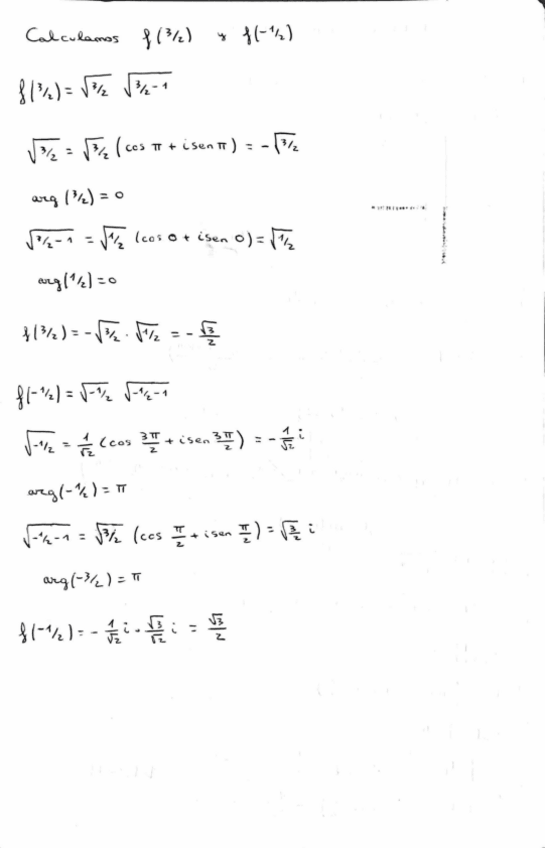 Calculamos f(3/2) y f(-1/2)
f(3/2) = √3/2 √3/2-1
√3/2 = √3/2 (cos π + i sen π) = -√3/2
arg (3/2) = 0
√3/2-1 = √1/2 (cos 0 + i sen 0) = √1/2
arg(1/2) = 0
f(3/2) = -√3/2 · √1/2 = - √3/2
f(-1/2) = √-1/2 √-1/2-1
√-1/2 = 1/√2 (cos 3π/2 + i sen 3π/2) = - 1/√2 i
arg(-1/2) = π
√-1/2-1 = √3/2 (cos π/2 + i sen π/2) = √3/2 i
arg(-3/2) = π
f(-1/2) = - 1/√2 i · √3/√2 i = √3/2